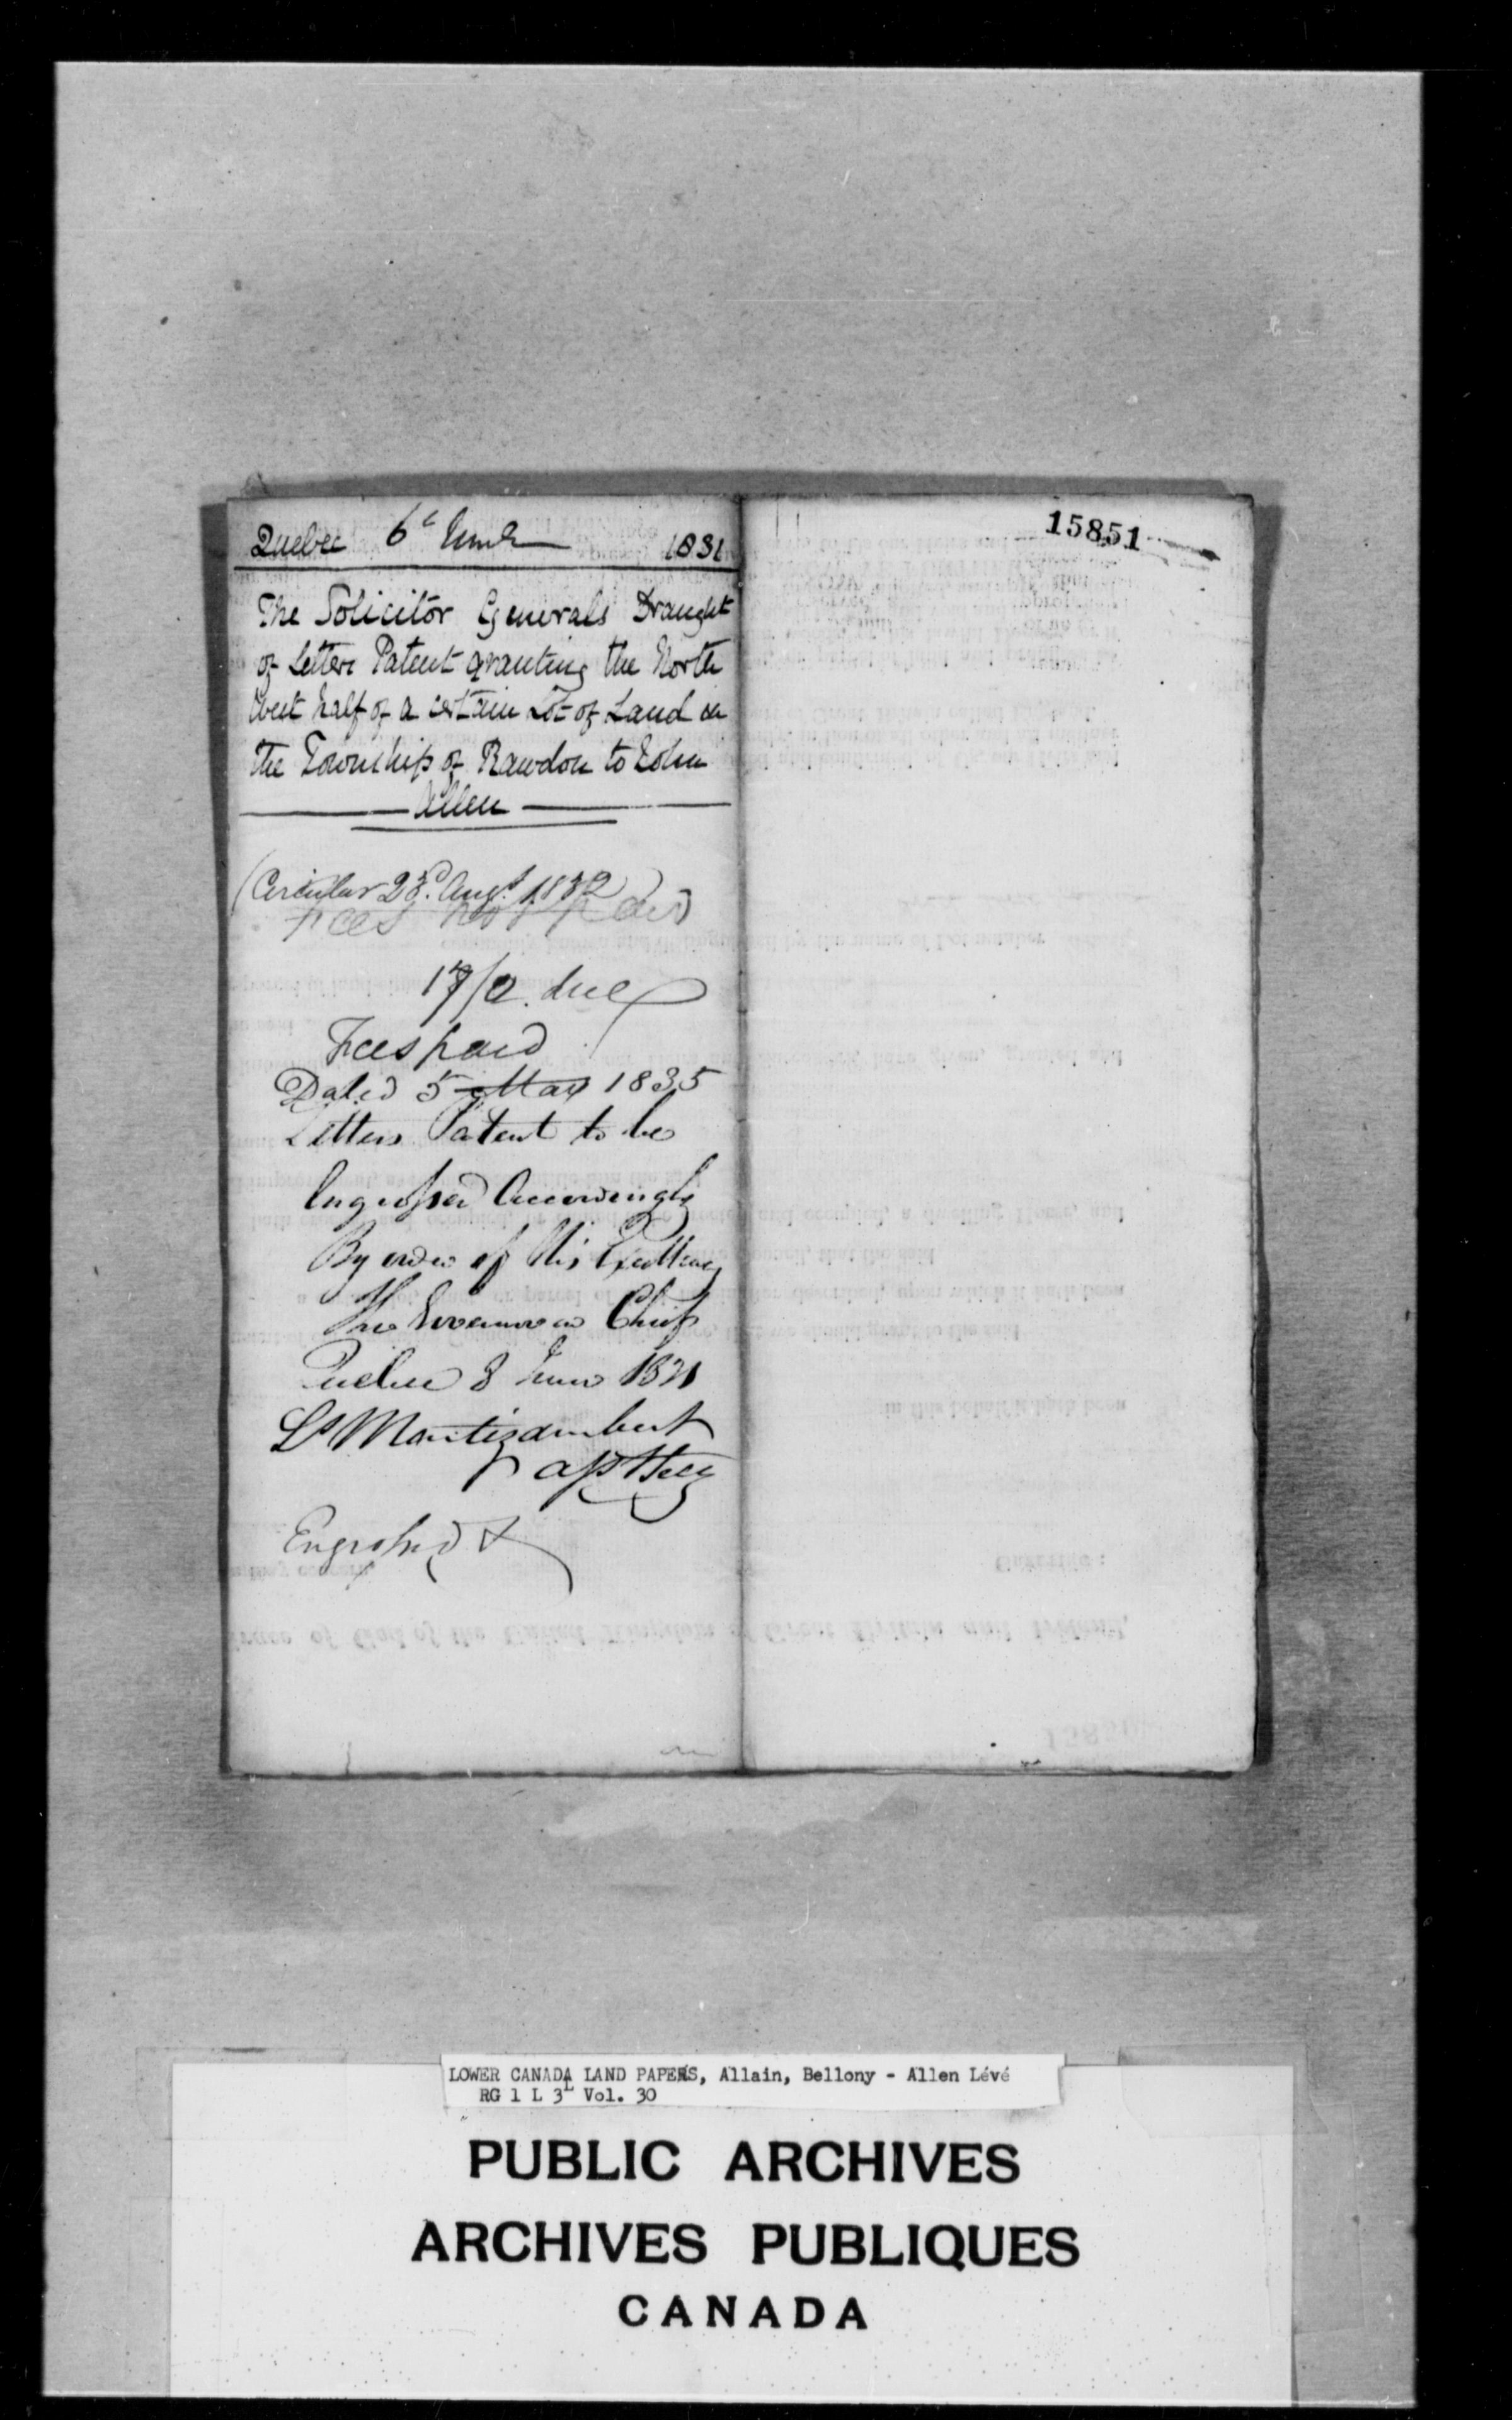 15851
Quebec 6th June 1831
The Solicitor Generals Draught
of Letters Patent granting the North
West half of a certain Lot of Land in
the Township of Rawdon to John
Allen
(Circular 23d. Augt. 1832)
Fees not paid
17/2 due
Fees paid
Dated 5 May 1835
Letters Patent to be
Engrossed Accordingly
By order of His Excellency
The Governor in Chief
Quebec 8 June 1831
Ls Montizambert
asst Secy
Engrossed
LOWER CANADA LAND PAPERS, Allain, Bellony - Allen Lévé
RG 1 L 3L Vol. 30
PUBLIC ARCHIVES
ARCHIVES PUBLIQUES
CANADA